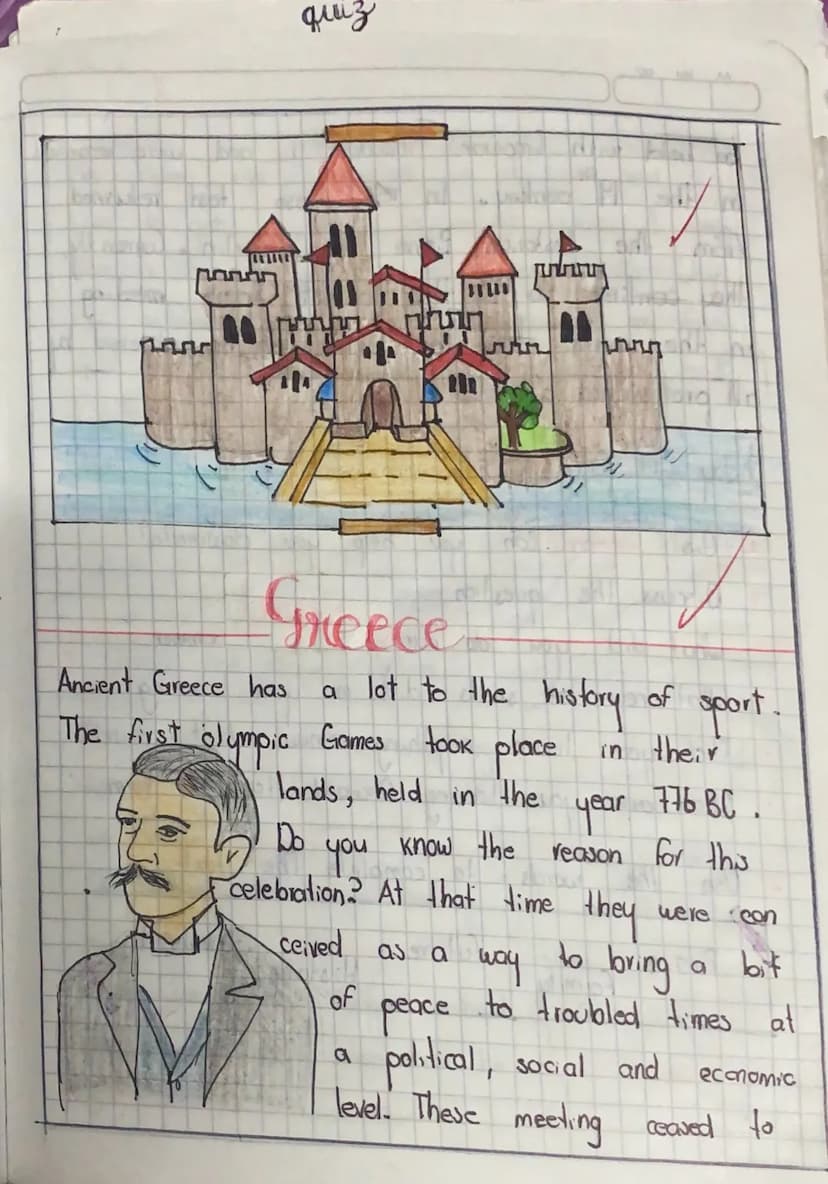 quiz
Greece
Ancient Greece has a lot to the history of sport.
The first olympic Games took place in their
lands, held in the year 776 BC.
Do you know the reason for this
celebration? At that time they were con
ceived as a way to bring a bit
of peace to troubled times at
a political, social and economic
level. These meeting ceased to